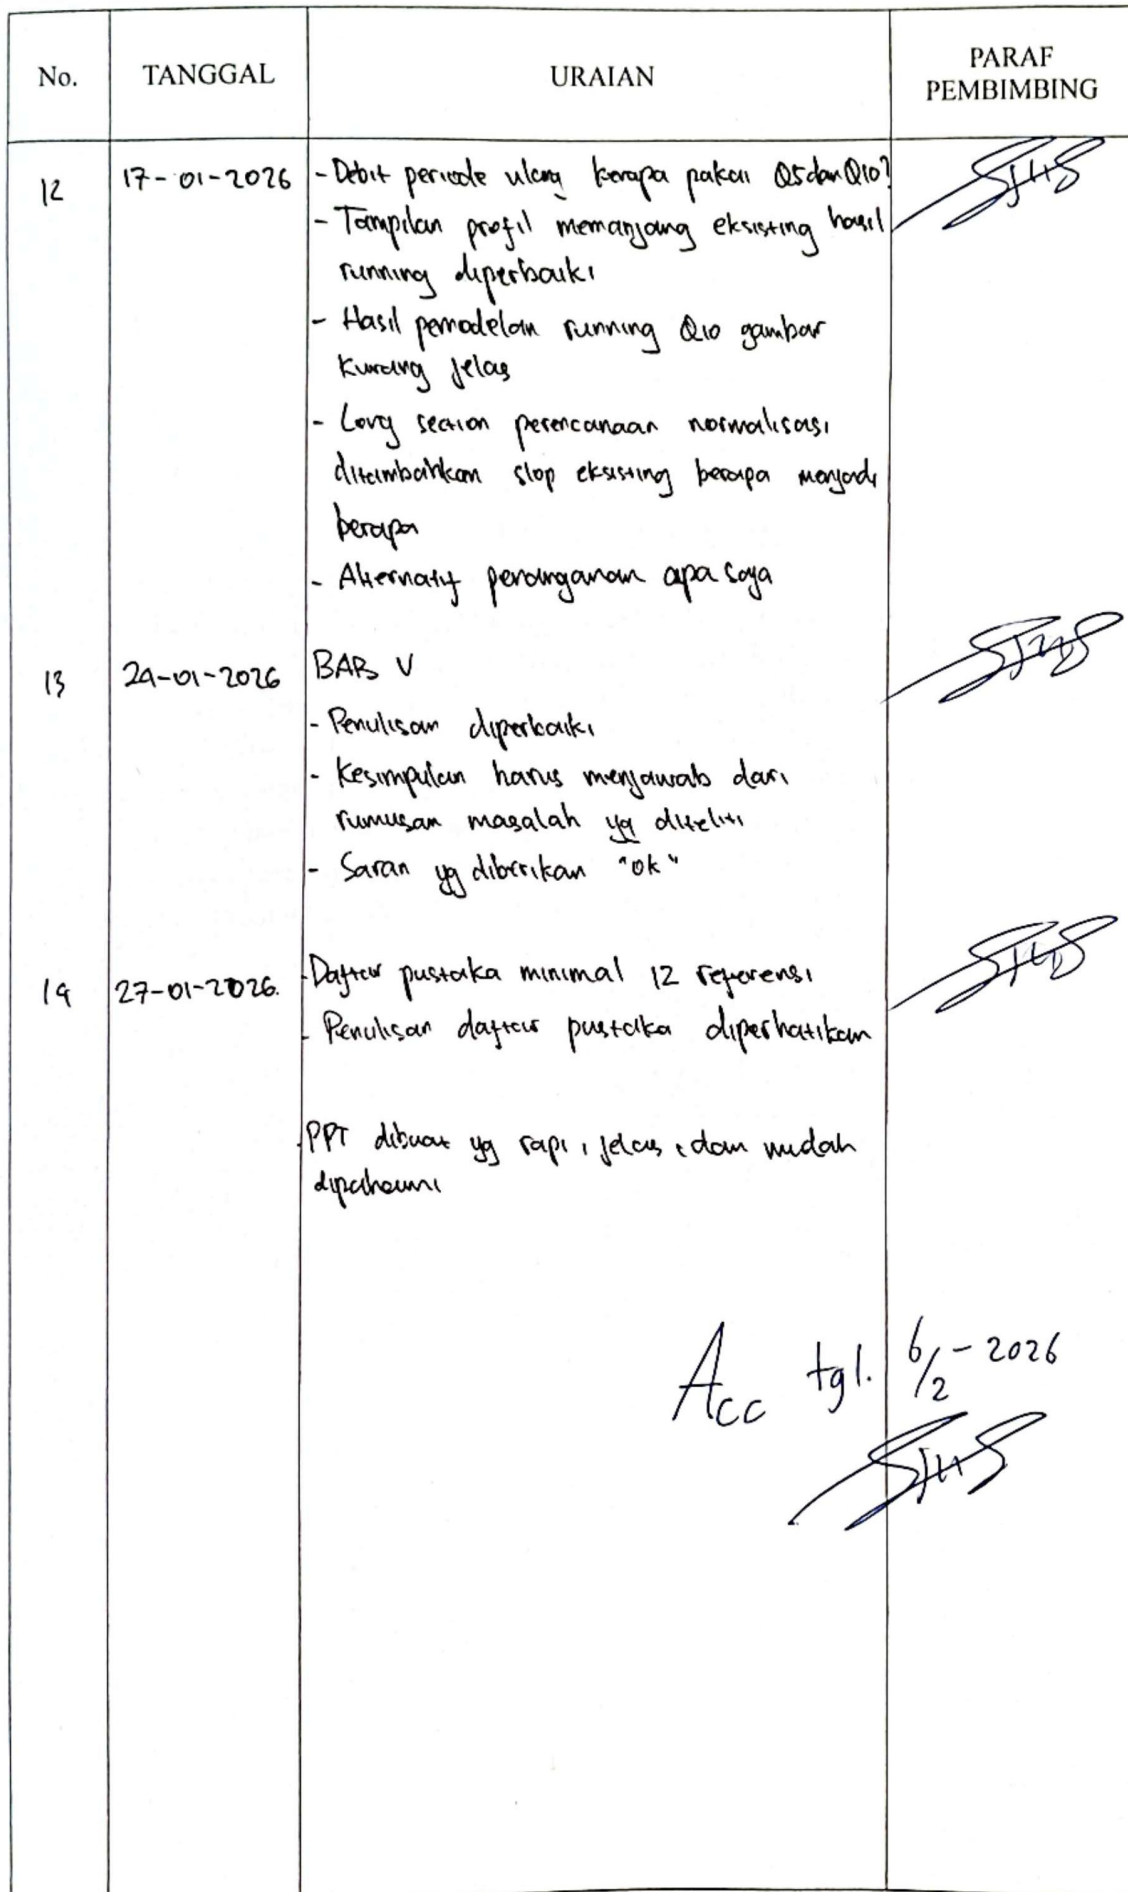 No. TANGGAL URAIAN PARAF PEMBIMBING
12 17-01-2026 - Debit periode ulang kerapa pakai Q5 dan Q10?
- Tampilan profil memanjang eksisting hasil
running diperbaiki
- Hasil pemodelan running Q10 gambar
kurang jelas
- Long section perencanaan normalisasi
ditambahkan slop eksisting berapa menjadi
berapa
- Alternatif penanganan apa saja
13 24-01-2026 BAB V
- Penulisan diperbaiki
- Kesimpulan harus menjawab dari
rumusan masalah yg diteliti
- Saran yg diberikan "ok"
14 27-01-2026. - Daftar pustaka minimal 12 referensi
- Penulisan daftar pustaka diperhatikan
- PPT dibuat yg rapi, jelas, dan mudah
dipahami
Acc tgl. 6/2-2026